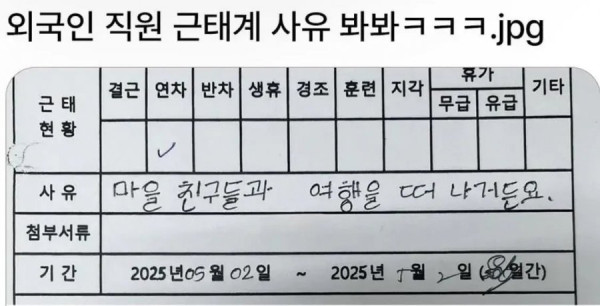 외국인 직원 근태계 사유 봐봐ㅋㅋㅋ.jpg
근태 현황 결근 연차 반차 생휴 경조 훈련 지각 휴가 무급 유급 기타
✓
사유 마을 친구들과 여행을 떠 나거든요.
첨부서류
기간 2025년 05월 02일 ~ 2025년 5월 2일 ( 일간)